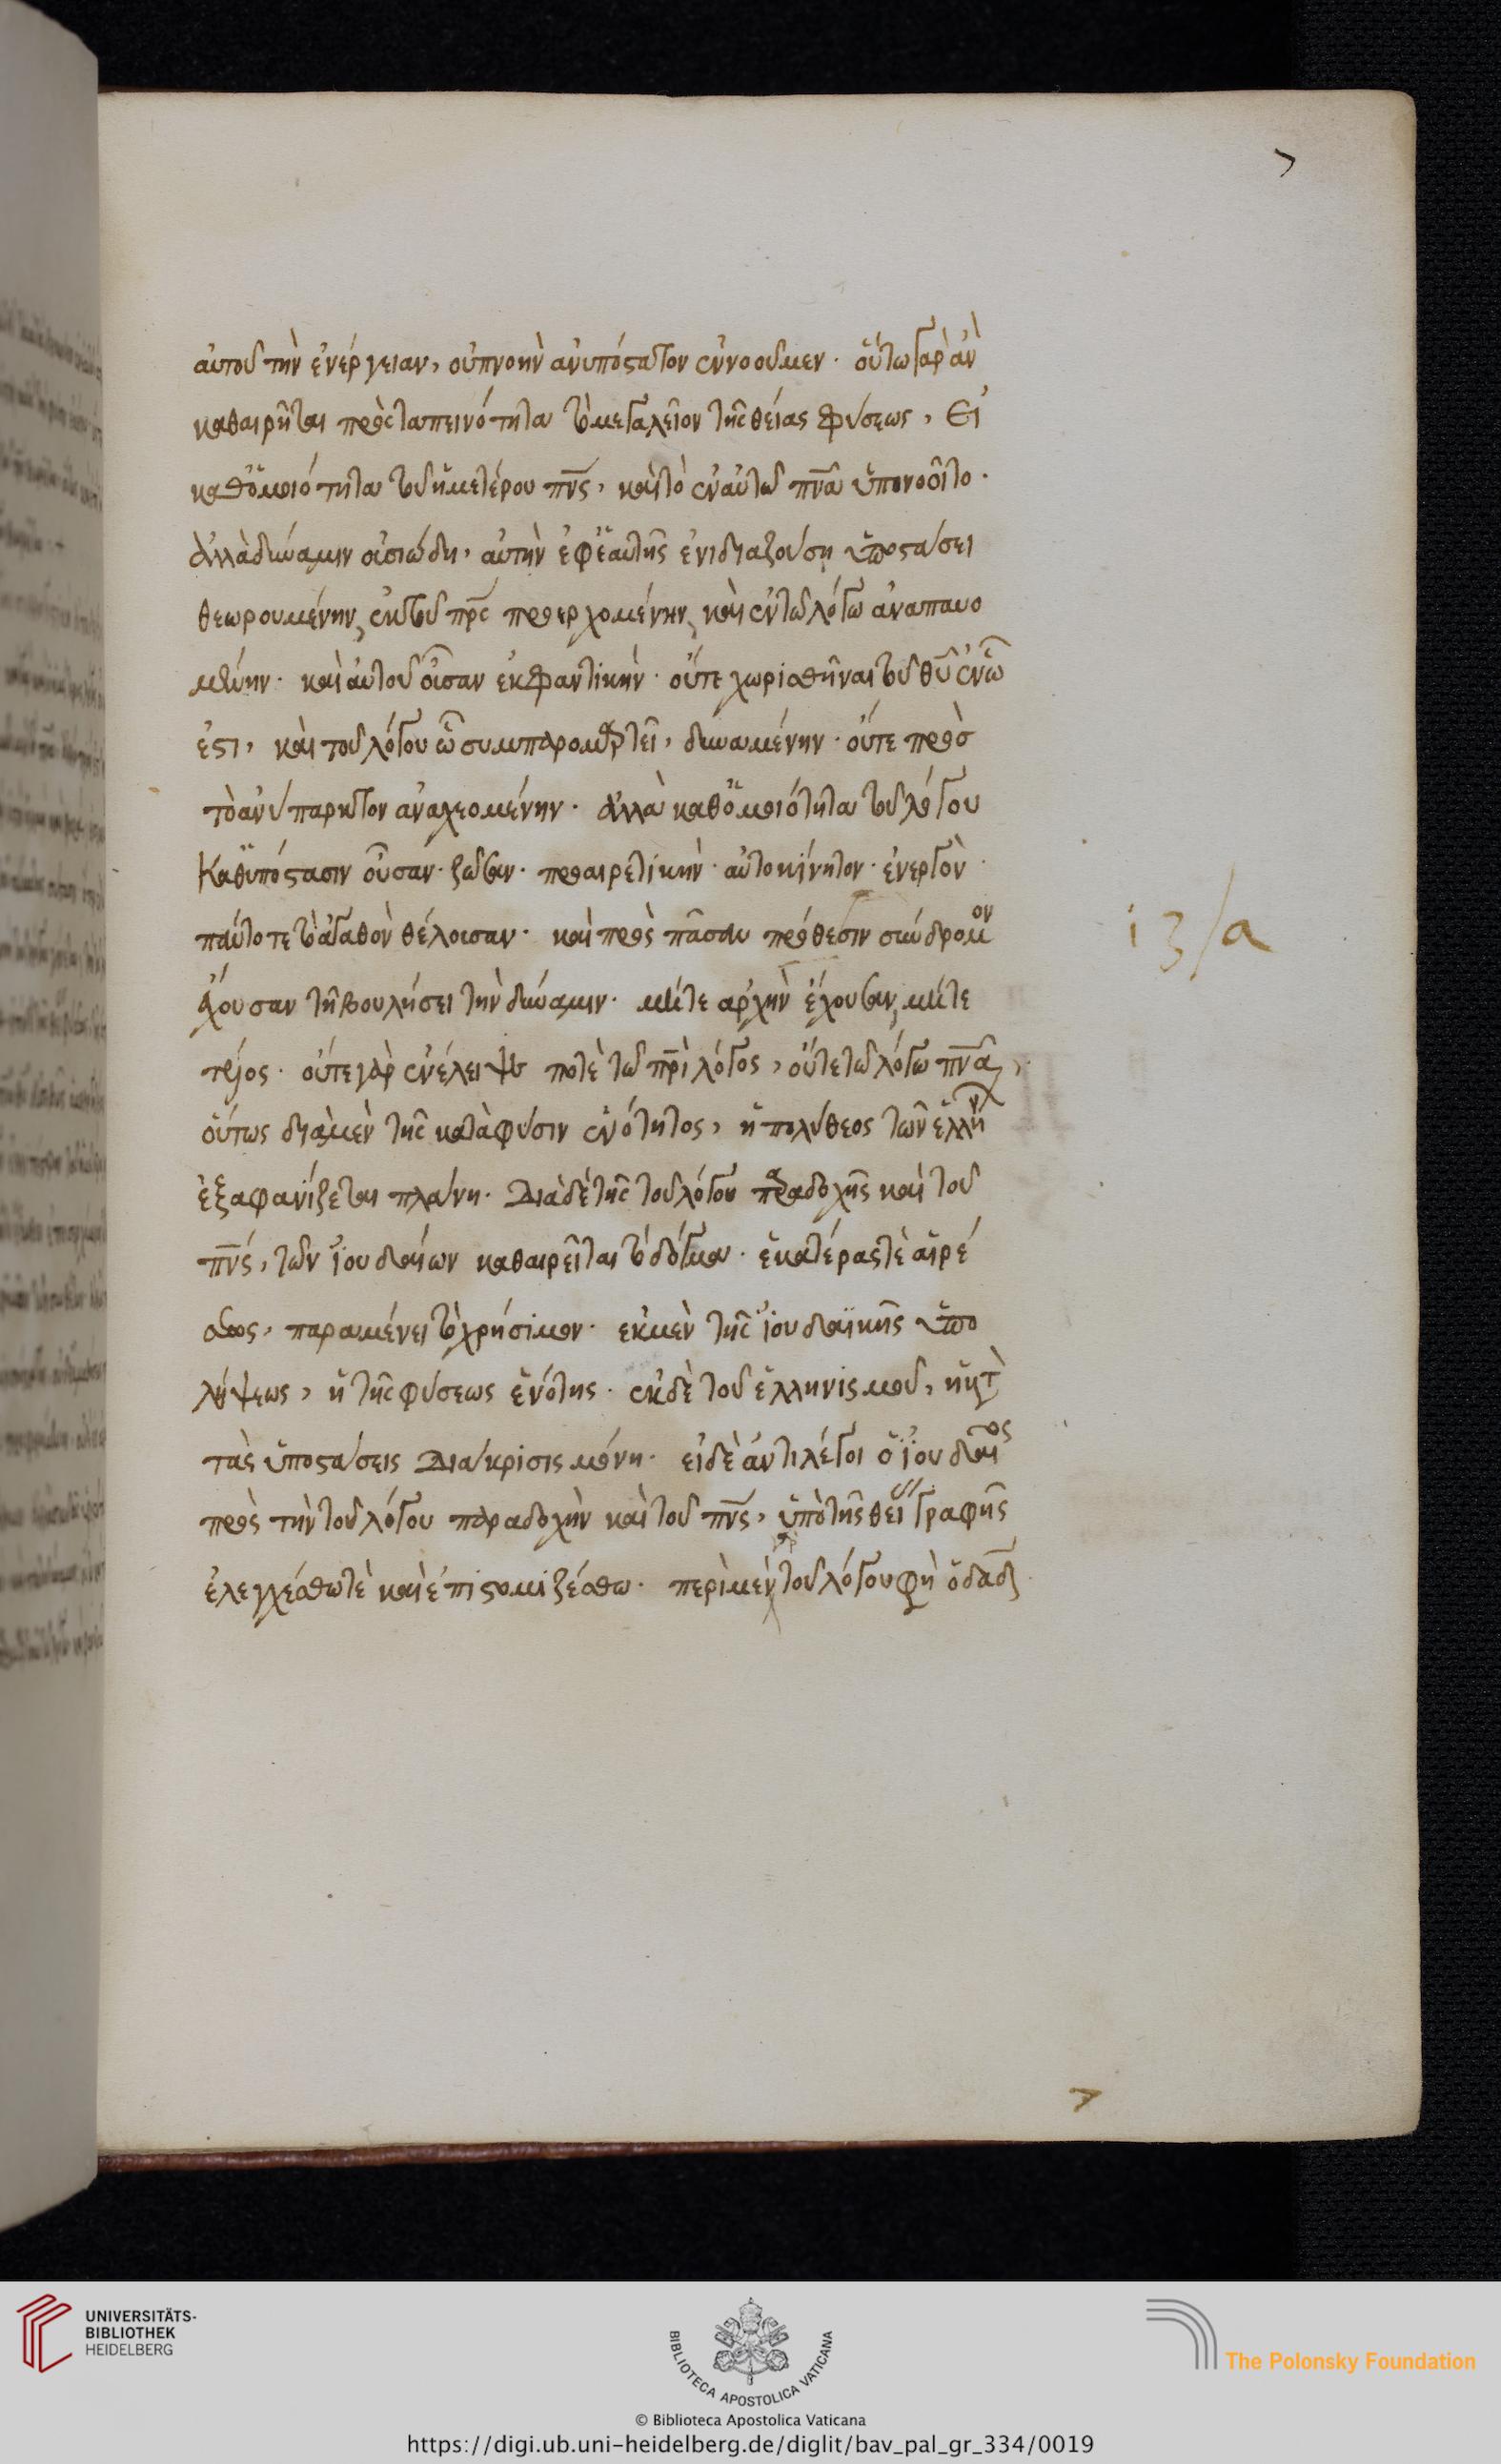 7
αὐτοῦ τὴν ἐνέργειαν, οὐ πνοὴν ἀνυπόστατον ἐννοοῦμεν· οὕτω γὰρ ἂν
καθαιρῆται πρὸς ταπεινότητα τὸ μεγαλεῖον τῆς θείας φύσεως, Εἰ
καθ' ὁμοιότητα τοῦ ἡμετέρου πνς, καὶ τὸ ἐν αὐτῶ πνα ὑπονοοῖτο·
ἀλλὰ δύναμιν οὐσιώδη, αὐτὴν ἐφ' ἑαυτῆς ἐν ἰδιαζούση ὑποστάσει
θεωρουμένην, ἐκ τοῦ πρς προερχομένην, καὶ ἐν τῶ λόγω ἀναπαυο
μένην· καὶ αὐτοῦ οὖσαν ἐκφαντικήν· οὔτε χωρισθῆναι τοῦ θυ ἐν ὧ
ἐστι, καὶ τοῦ λόγου ὧ συμπαρομαρτεῖ, δυναμένην· οὔτε πρὸσ
τὸ ἀνύπαρκτον ἀναχεομένην· ἀλλὰ καθ' ὁμοιότητα τοῦ λόγου
καθ' ὑπόστασιν οὖσαν· ζῶσαν· προαιρετικήν· αὐτοκίνητον· ἐνεργὸν·
πάντοτε τὸ ἀγαθὸν θέλουσαν· καὶ πρὸς πᾶσαν πρόθεσιν σύνδρομον
ἔχουσαν τῆ βουλήσει τὴν δύναμιν· μήτε αρχὴν ἔχουσαν, μήτε
τέλος· οὔτε γὰρ ἐνέλειψε ποτὲ τῶ πρι λόγος, οὔτε τῶ λόγω πνα,
οὕτως διὰ μὲν τῆς κατὰ φύσιν ἑνότητος, ἡ πολύθεος τῶν ἑλλήν
ἐξαφανίζεται πλάνη· Διὰ δὲ τῆς τοῦ λόγου παραδοχῆς καὶ τοῦ
πνς, τῶν ἰουδαίων καθαιρεῖται τὸ δόγμα· ἑκατέρας τὲ αἱρέ
σεως, παραμένει τὸ χρήσιμον· εκ μὲν τῆς ἰουδαϊκῆς ὑπο
λήψεως, ἡ τῆς φύσεως ἑνότης· ἐκ δὲ τοῦ ἑλληνισμοῦ, ἡ κατὰ
τὰς ὑποστάσεις Διάκρισις μόνη· εἰ δὲ ἀντιλέγοι ὁ ἰουδαῖος
πρὸς τὴν τοῦ λόγου παραδοχὴν καὶ τοῦ πνς, ὑπὸ τῆς θεί γραφῆς
ἐλεγχέσθω τὲ καὶ ἐπιστομιζέσθω· περὶ μὲν γὰρ τοῦ λόγου φη ὁ δαδ
i3/a
UNIVERSITÄTS-
BIBLIOTHEK
HEIDELBERG
BIBLIOTECA APOSTOLICA VATICANA
The Polonsky Foundation
© Biblioteca Apostolica Vaticana
https://digi.ub.uni-heidelberg.de/diglit/bav_pal_gr_334/0019